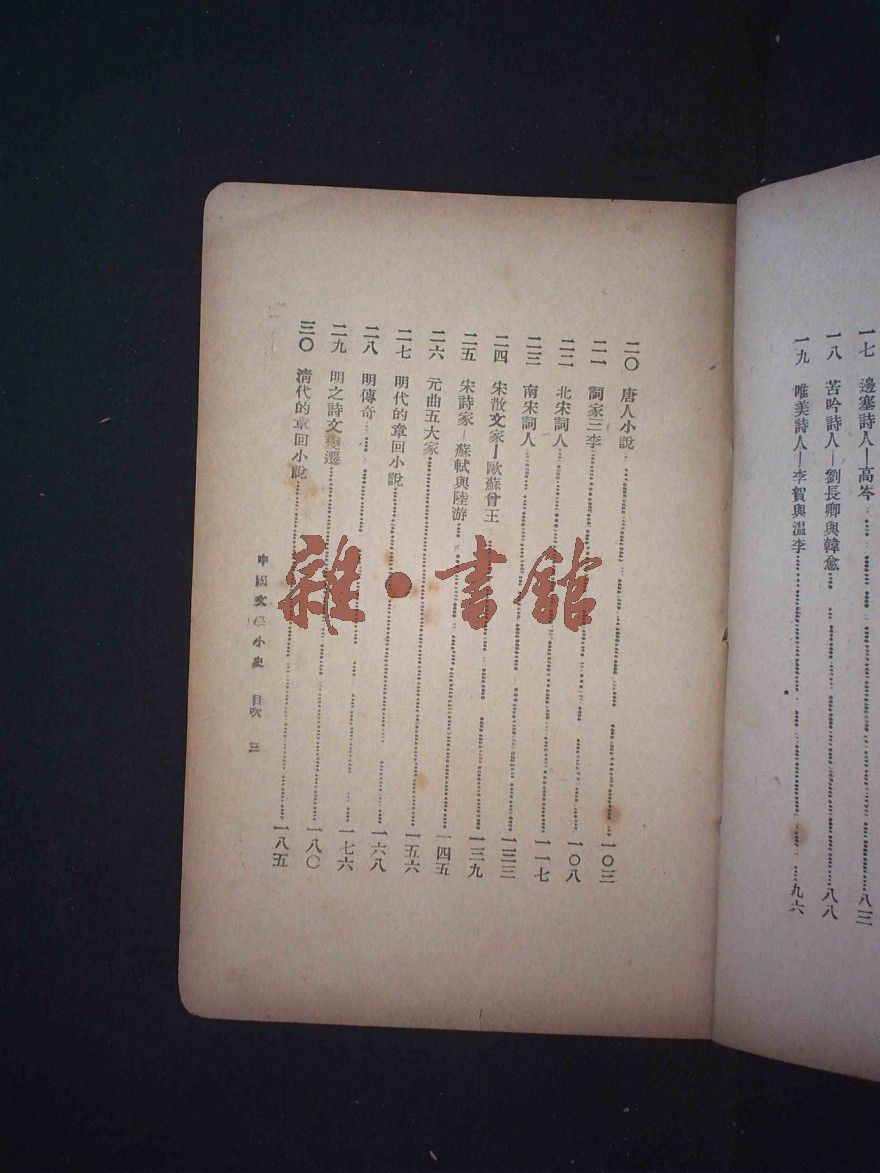 一七 邊塞詩人—高岑……八三
一八 苦吟詩人—劉長卿與韓愈……八八
一九 唯美詩人—李賀與溫李……九六
二〇 唐人小說……一〇三
二一 詞家三李……一〇八
二二 北宋詞人……一一七
二三 南宋詞人……一三三
二四 宋散文家—歐蘇曾王……一三九
二五 宋詩家—蘇軾與陸游……一四五
二六 元曲五大家……一五六
二七 明代的章回小說……一六八
二八 明傳奇……一七六
二九 明之詩文變遷……一八〇
三〇 清代的章回小說……一八五
中國文學小史 目次 三
雜·書館